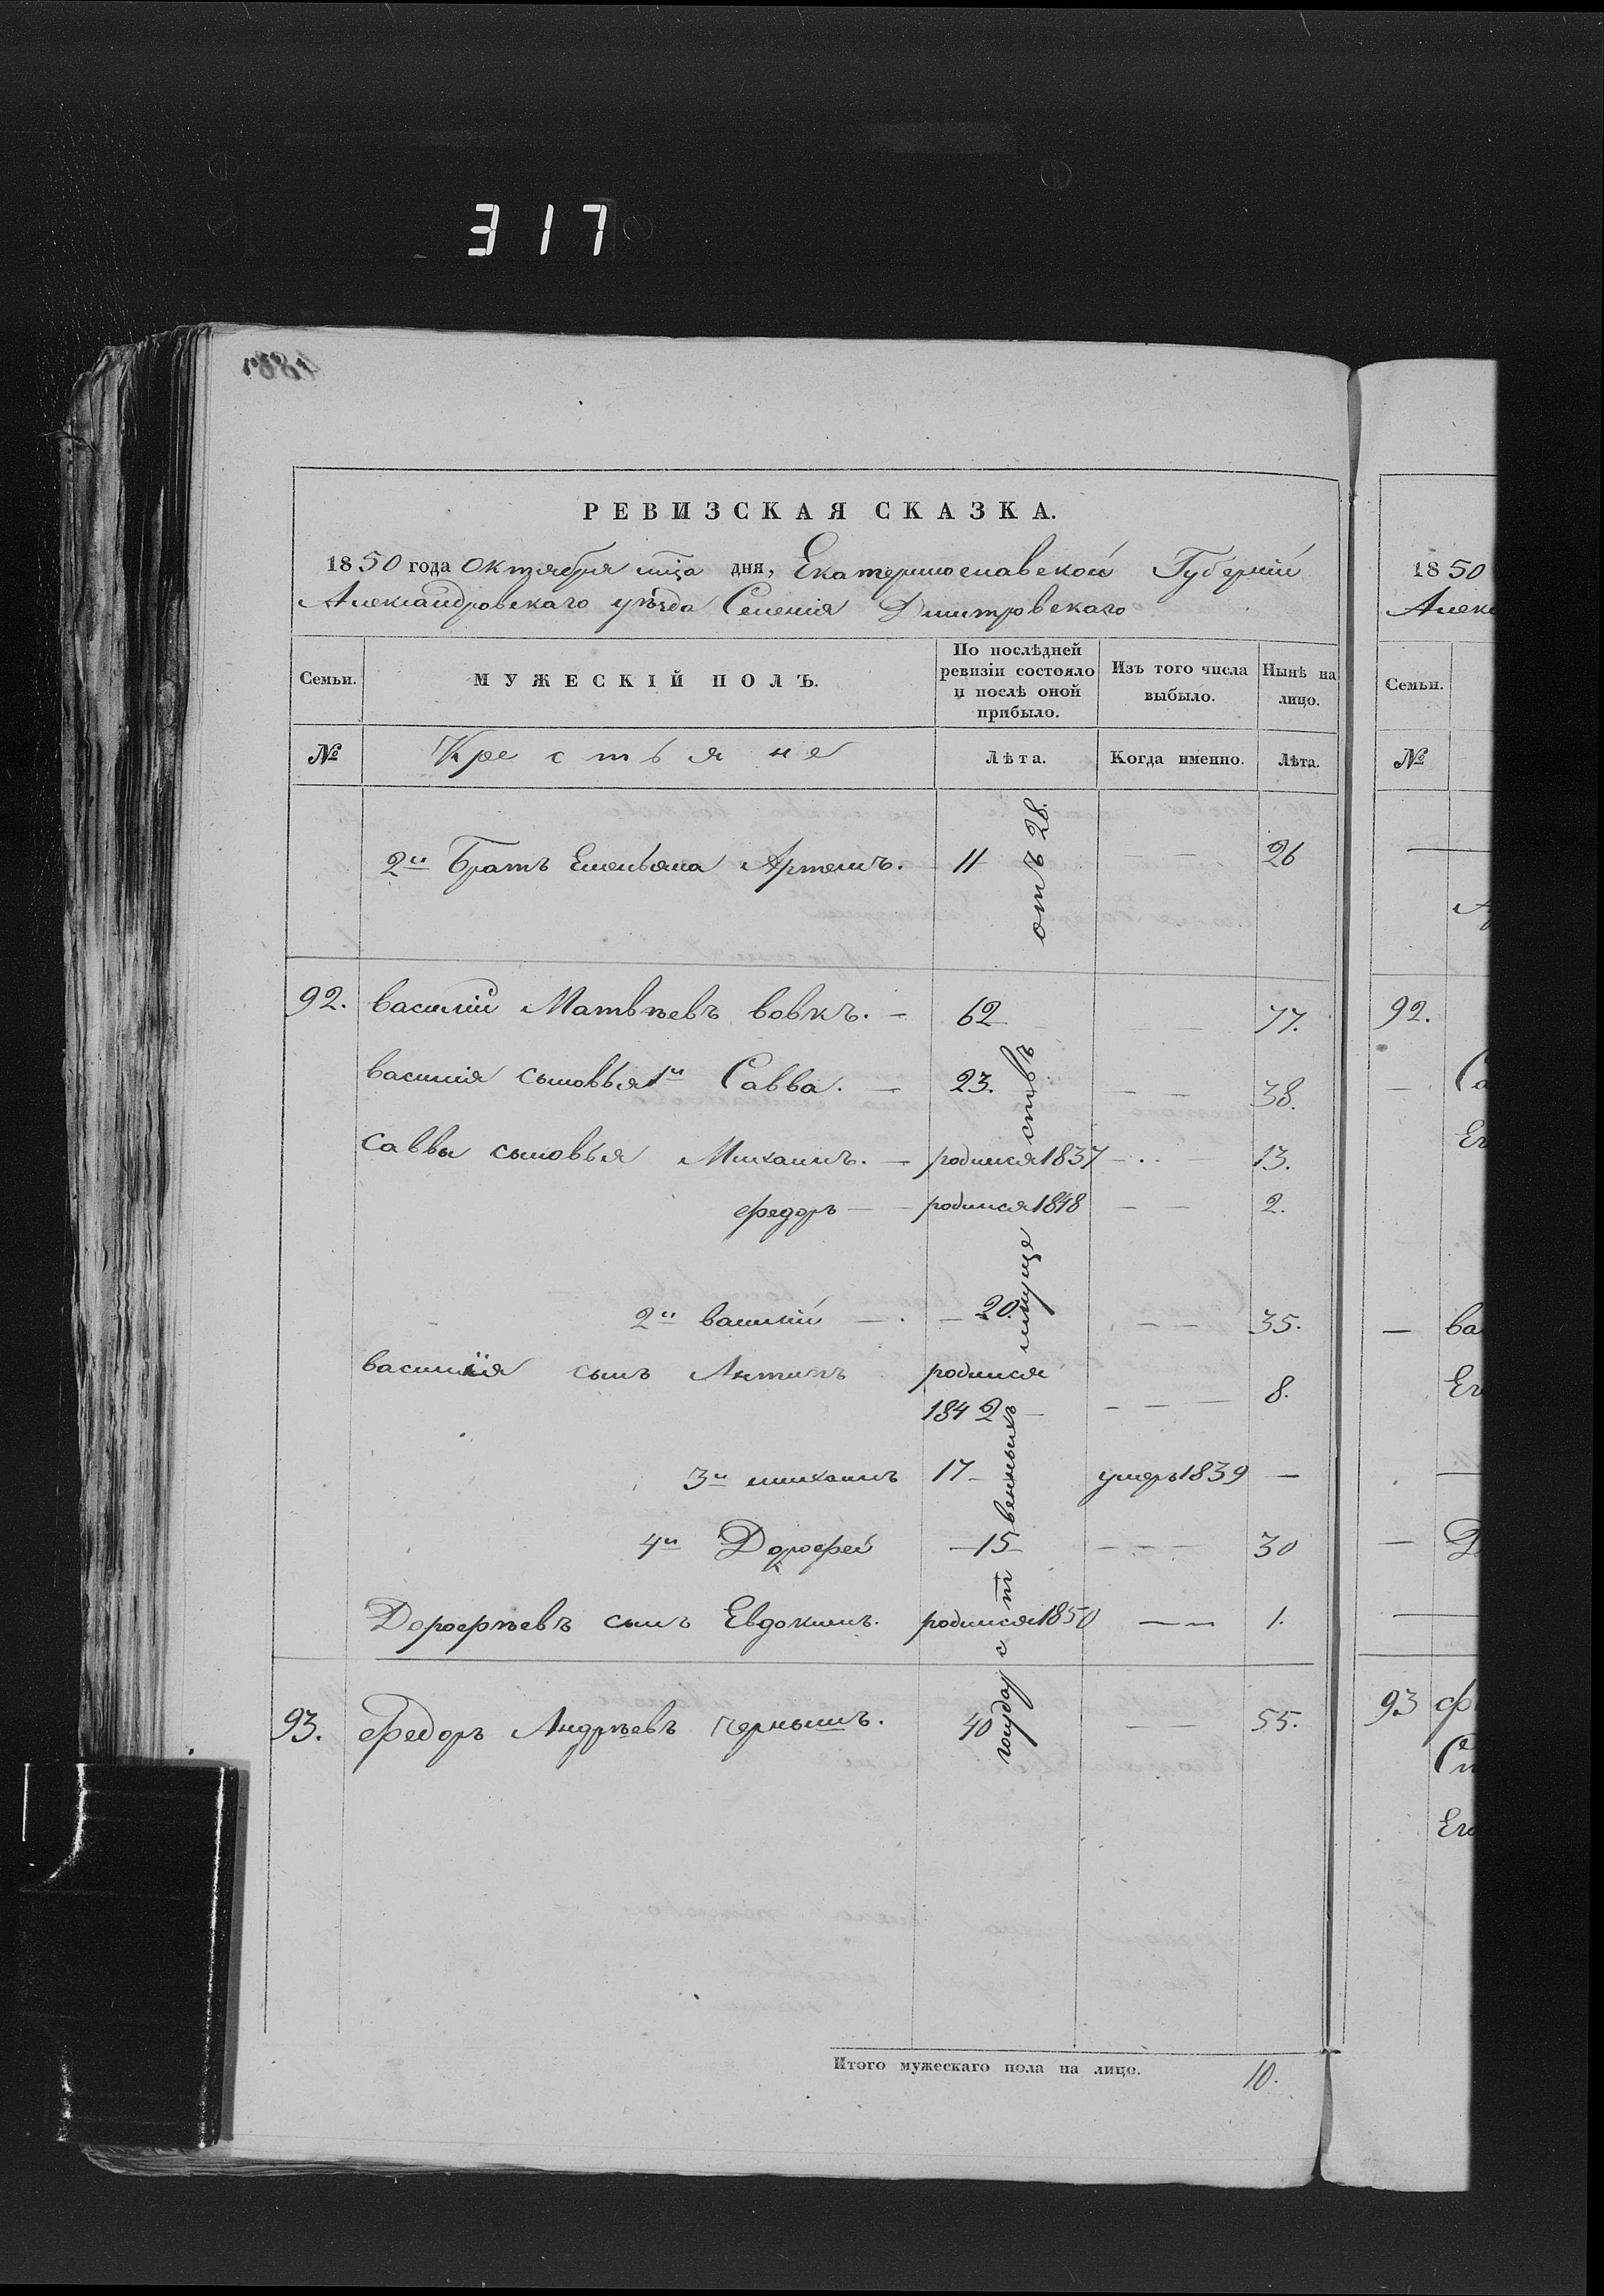 317
РЕВИЗСКАЯ СКАЗКА.
1850 года Октября мца дня, Екатеринославской Губерніи
Александровскаго уѣзда Селенія Дмитровскаго
Семьи.
МУЖЕСКІЙ ПОЛЪ.
По послѣдней ревизіи состояло и послѣ оной прибыло.
Изъ того числа выбыло.
Нынѣ на лицо.
№
Крестьяне
Лѣта.
Когда именно.
Лѣта.
2й Братъ Емельяна Артемъ. 11 — — 26
92. Василій Матвѣевъ Вовкъ. — 62 — 77.
Василія сыновья 1й Савва. — 23. — — 38.
Саввы сыновья Михаилъ. — родился 1837 — 13.
Федоръ — — родился 1848 — — 2.
2й Василій — — 20. — — 35.
Василія сынъ Антипъ родился
1842 — — — — 8.
3й Михаилъ 17 — умеръ 1839 —
4й Дорофей — 15 — — — — 30
Дорофѣевъ сынъ Евдокимъ. родился 1850 — — 1.
93. Федоръ Андрѣевъ Чернышъ. 40 — — 55.
государственныхъ имуществъ
отъ 28.
Итого мужескаго пола на лицо. 10.
1850
Алек
Семьи.
№
92.
Са
Ег
Ва
Ег
Д
93 Ф
Ег